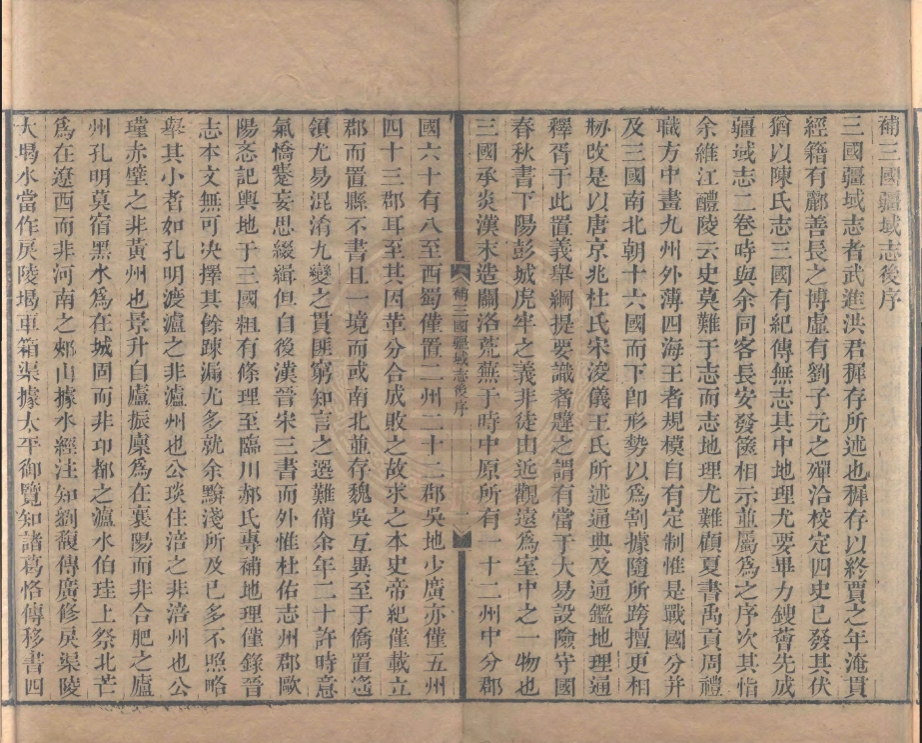 補三國疆域志後序
三國疆域志者武進洪君穉存所述也穉存以終賈之年淹貫
經籍有酈善長之博虛有劉子元之殫洽校定四史已發其伏
猶以陳氏志三國有紀傳無志其中地理尤要畢力鎪薈先成
疆域志二卷時與余同客長安發篋相示並屬爲之序次其恉
余維江醴陵云史莫難于志而志地理尤難顧夏書禹貢周禮
職方中畫九州外薄四海王者規模自有定制惟是戰國分并
及三國南北朝十六國而下卽形勢以爲割據隨所跨擅更相
剏改是以唐京兆杜氏宋淩儀王氏所述通典及通鑑地理通
釋胥于此置義舉綱提要識者韙之謂有當于大易設險守國
春秋書下陽彭城虎牢之義非徒由近觀遠爲室中之一物也
三國承炎漢末造關洛荒蕪于時中原所有一十二州中分郡
補三國疆域志後序
一
國六十有八至西蜀僅置二州二十二郡吳地少廣亦僅五州
四十三郡耳至其因革分合成敗之故求之本史帝紀僅載立
郡而置縣不書且一境而或南北並存魏吳互異至于僑置遙
領尤易混淆九變之貫匪窮知言之選難備余年二十許時意
氣憍蹇妄思綴緝但自後漢晉宋三書而外惟杜佑志州郡歐
陽忞記輿地于三國粗有條理至臨川郝氏專補地理僅錄晉
志本文無可決擇其餘踈漏尤多就余黭淺所及已多不照略
舉其小者如孔明渡瀘之非瀘州也公琰住涪之非涪州也公
瑾赤壁之非黃州也景升自廬振廩爲在襄陽而非合肥之廬
州孔明莫宿黑水爲在城固而非卭都之瀘水伯珪上祭北芒
爲在遼西而非河南之郟山據水經注知劉馥傳廣修戾渠陵
大堨水當作戾陵堨車箱渠據太平御覽知諸葛恪傳移書四